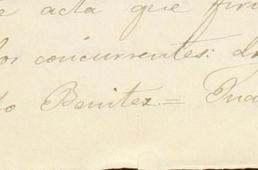 e acta que fir
los concurrentes: do
to Benitez.=